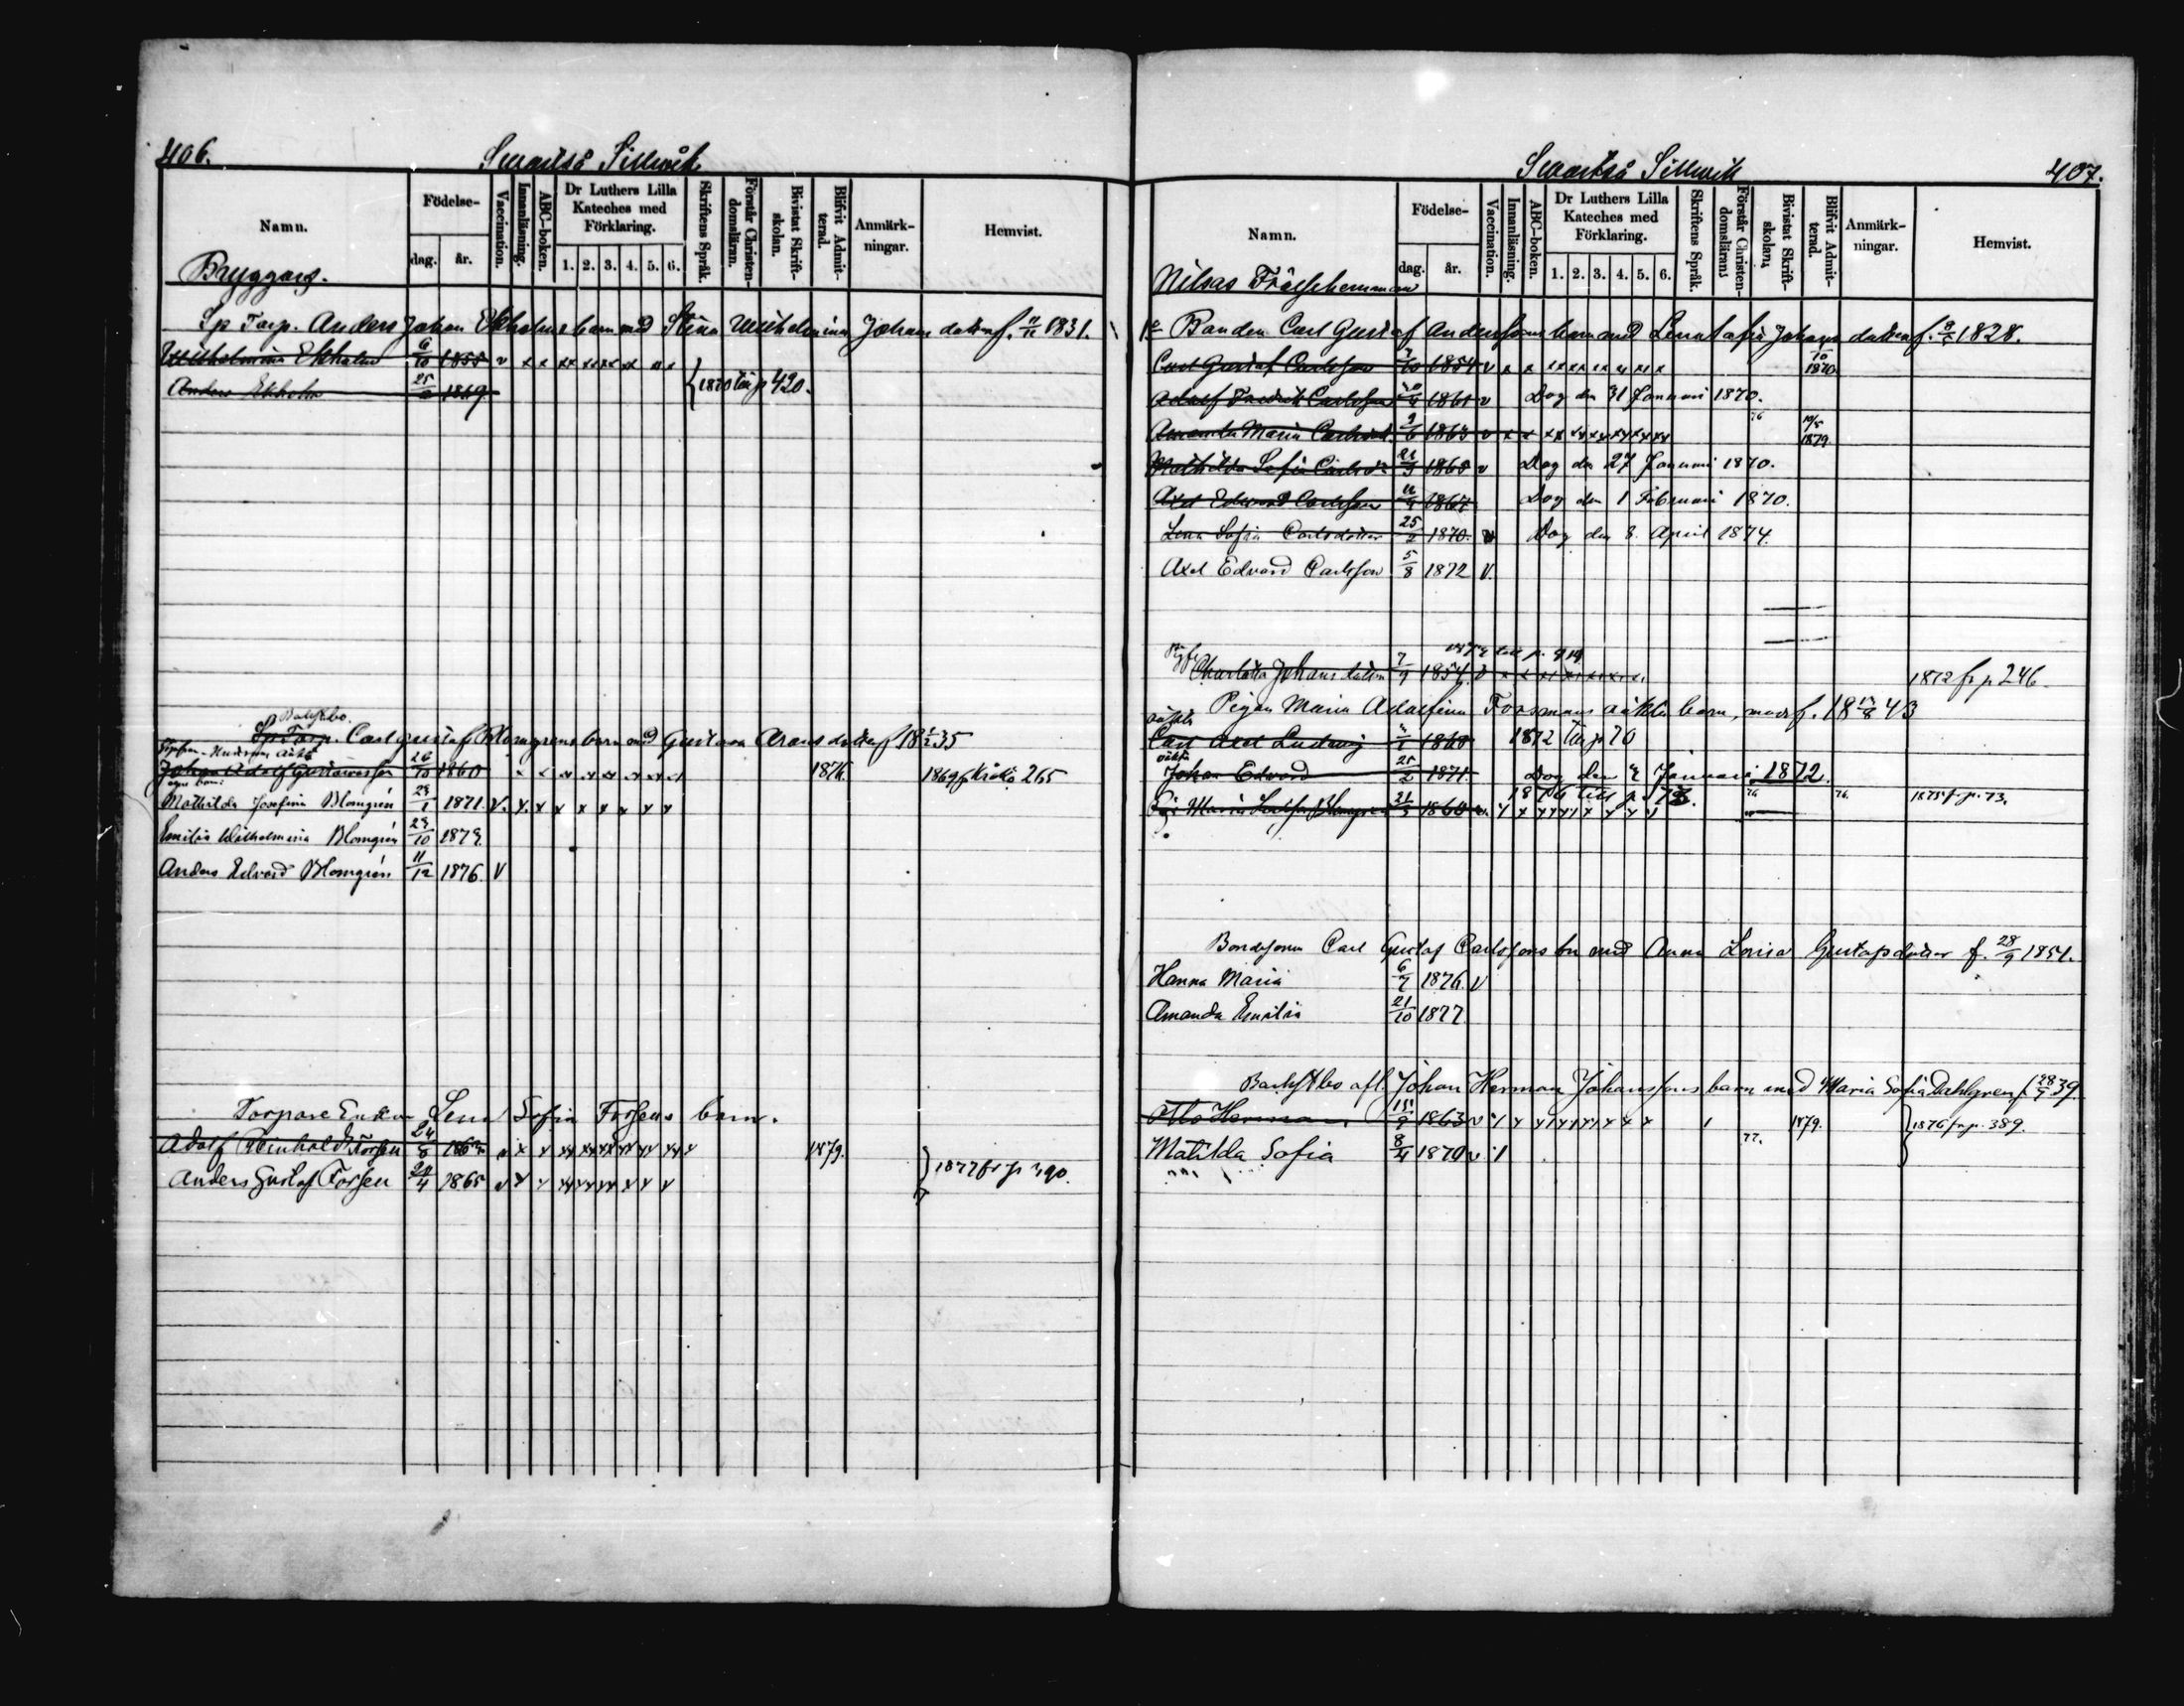 406.
Swartså Sillwik
Namn.
Födelse-
dag.
år.
Vaccination.
Innanläsning.
ABC-boken.
Dr Luthers Lilla
Kateches med
Förklaring.
1. 2. 3. 4. 5. 6.
Skriftens Språk.
Förstår Christen-
domsläran.
Bivistat Skrift-
skolan.
Blifvit Admit-
terad.
Anmärk-
ningar.
Hemvist.
Bryggars.
Sp Torp. Anders Johan Ekholms barn med Stina Wilhelmina Johans dotter f. 1831.
Wilhelmina Ekholm 6/10 1855 v x x xx xx xx xx x x
Anders Ekholm 1869 1870 till p 420.
Backstbo.
Sp Torp. Carl Gustaf Blomgrens barn med Gustava f 18 35
Johan Adolf Gustawsson 26/10 1860 1876 1869 fr Kråkö 265
Mathilda Josefina Blomgrén 1871. v. x. x x x x x x x
Emilia Wilhelmina Blomgrén 29/10 1873.
Anders Edvard Blomgrén 11/12 1876 V
Torpare Enkan Lena Sofia Forssens barn.
Adolf Reinhold Forssen 24/8 1862 1879.
Anders Gustaf Forssen 24/4 1865 v 1877 fr p 390.
Swartså Sillwik
407.
Namn.
Födelse-
dag.
år.
Vaccination.
Innanläsning.
ABC-boken.
Dr Luthers Lilla
Kateches med
Förklaring.
1. 2. 3. 4. 5. 6.
Skriftens Språk.
Förstår Christen-
domsläran.
Bivistat Skrift-
skolan.
Blifvit Admit-
terad.
Anmärk-
ningar.
Hemvist.
Nilsas Frälsehemman
Bonden Carl Gustaf Anderssons barn med Lena Sofia Johans dotter f. 1828.
Carl Gustaf Carlsson 1854 v 1870.
Adolf Fredrik Carlsson 1861 v Dog den 31 Januari 1870.
Amanda Maria Carlsdr 9/6 1863 v 76 1879.
Mathilda Sofia Carlsdr 1865 v Dog den 27 Januari 1870.
Axel Edward Carlsson 1867 Dog den 1 Februari 1870.
Lena Sofia Carlsdotter 25/2 1870. v Dog den 8. April 1874.
Axel Edvard Carlsson 5/8 1872 V.
Charlotta Johans dotter 7/9 1854. 1872 fr p 246.
Pigan Maria Adolfina Forsmans oäkta barn, mor f. 18 43
oäkta
Carl Axel Ludwig 1868 1872 till p 70
oäkta
Johan Edvard 25/2 1871. Dog den Januari 1872.
1876 till p 73.
Maria Blomgren 1860 76 76. 1875 fr p. 73.
Bondesonen Carl Gustaf Carlssons bn med Anna Lovisa Gustafsdotter f. 28/9 1854.
Hanna Maria 6/7 1876. V
Amanda Emilia 21/10 1877.
Backstbo afl. Johan Herman Johanssons barn med Maria Sofia Dahlgren f. 39.
Otto Herman 15/9 1863 v 1879. 1876 fr p. 389.
Matilda Sofia 8/4 1870 v 77.